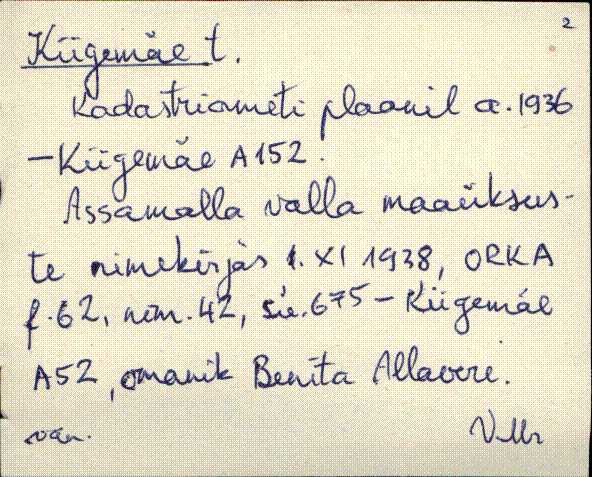 2
Kiigemäe t.
Kadastriameti plaanil a. 1936
- Kiigemäe A152.
Assamalla valla maaüksus-
te nimekirjas 1. XI 1938, ORKA
f. 62, nim. 42, sü. 675 - Kiigemäe
A52, omanik Benita Allavere.